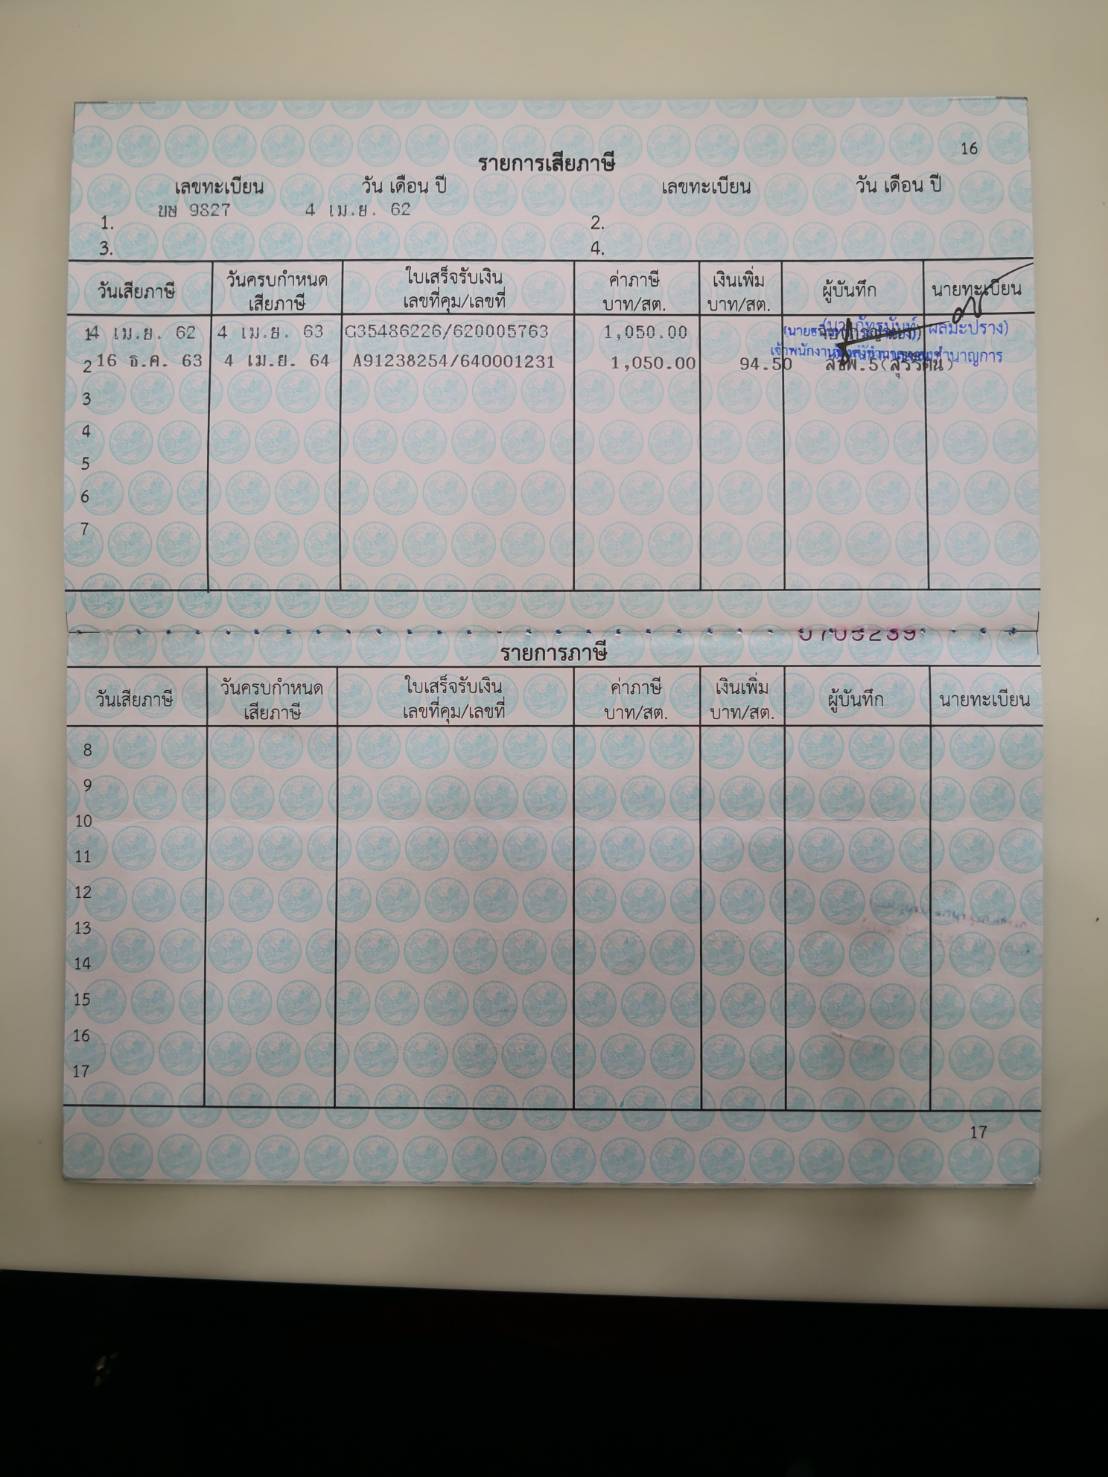 16
รายการเสียภาษี
เลขทะเบียน วัน เดือน ปี เลขทะเบียน วัน เดือน ปี
1. ขษ 9827 4 เม.ย. 62 2.
3. 4.
วันเสียภาษี วันครบกำหนดเสียภาษี ใบเสร็จรับเงิน เลขที่คุม/เลขที่ ค่าภาษี บาท/สต. เงินเพิ่ม บาท/สต. ผู้บันทึก นายทะเบียน
1 4 เม.ย. 62 4 เม.ย. 63 G35486226/620005763 1,050.00 ผลมะปราง)
2 16 ธ.ค. 63 4 เม.ย. 64 A91238254/640001231 1,050.00 94.50 (สุวรัตน์)
3
4
5
6
7
รายการภาษี
วันเสียภาษี วันครบกำหนดเสียภาษี ใบเสร็จรับเงิน เลขที่คุม/เลขที่ ค่าภาษี บาท/สต. เงินเพิ่ม บาท/สต. ผู้บันทึก นายทะเบียน
8
9
10
11
12
13
14
15
16
17
17